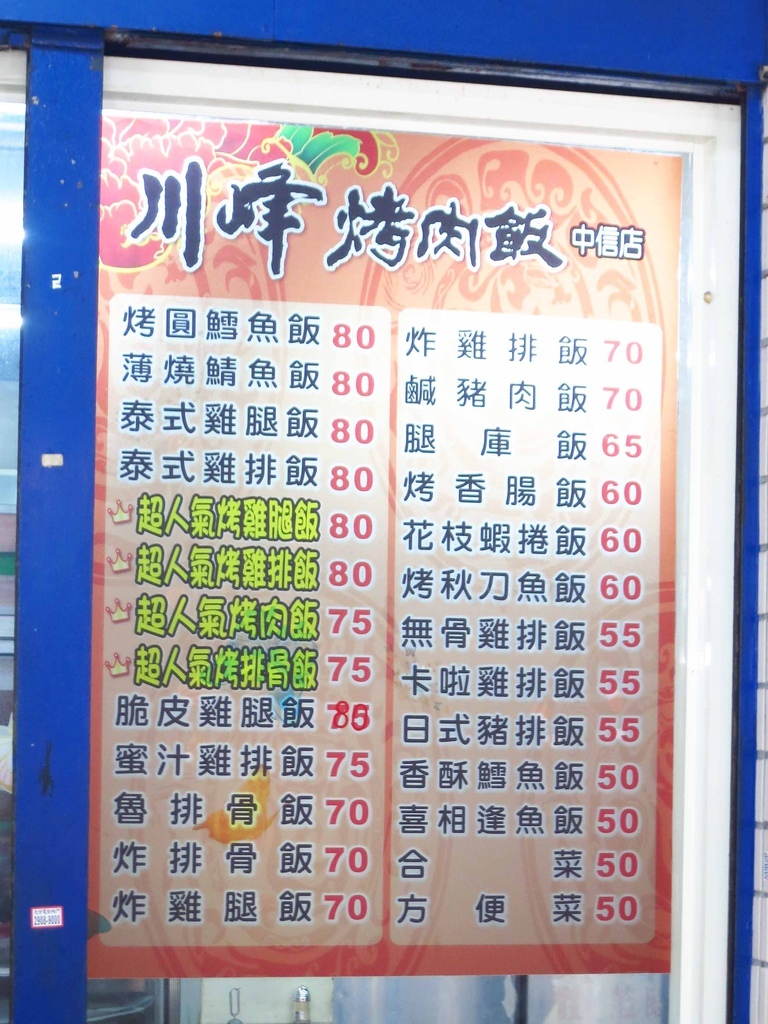 川峰 烤肉飯 中信店
烤圓鱈魚飯 80
薄燒鯖魚飯 80
泰式雞腿飯 80
泰式雞排飯 80
超人氣烤雞腿飯 80
超人氣烤雞排飯 80
超人氣烤肉飯 75
超人氣烤排骨飯 75
脆皮雞腿飯 80
蜜汁雞排飯 75
魯排骨飯 70
炸排骨飯 70
炸雞腿飯 70
炸雞排飯 70
鹹豬肉飯 70
腿庫飯 65
烤香腸飯 60
花枝蝦捲飯 60
烤秋刀魚飯 60
無骨雞排飯 55
卡啦雞排飯 55
日式豬排飯 55
香酥鱈魚飯 50
喜相逢魚飯 50
合菜 50
方便菜 50
2908-9000